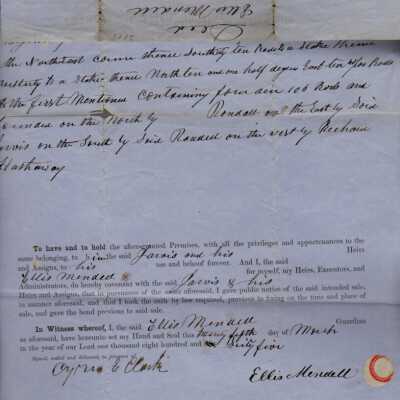 Deed
Ellis Mendell
the Northeast corner thence Southerly ten Rods to a Stake thence
to a Stake thence North ten and one half degrees East ten Rods
the first Mentioned Containing four 100 Rods and
on the North by Randall on the East by Said
Jarvis on the South by Said Randell on the west by
Hathaway
To have and to hold the aforegranted Premises, with all the privileges and appurtenances to the
same belonging, to him the said Jarvis and his Heirs
and Assigns, to his use and behoof forever. And I, the said
Ellis Mendell for myself, my Heirs, Executors, and
Administrators, do hereby covenant with the said Jarvis & his
Heirs and Assigns, that in pursuance of the oath aforesaid, I gave public notice of the said intended sale,
in manner aforesaid, and that I took the oath by law required, previous to fixing on the time and place of
sale, and gave the bond previous to said sale.
In Witness whereof, I, the said Ellis Mendell Guardian
as aforesaid, have hereunto set my Hand and Seal this twenty fifth day of March
in the year of our Lord one thousand eight hundred and Sixty five
Signed, sealed and delivered, in presence of
Cyrus E Clark
Ellis Mendell